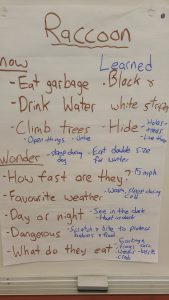 Raccoon
now Learned
- Eat garbage - Black &
- Drink Water white stripes
- Climb trees - Hide - Holes
- trees
- Open things
Wonder - sleep during day - Eat double size for winter
- How fast are they? - 15 mph
- Favourite weather - Warm, sleep during cold
- Day or night - See in the dark
- Hunt in dark
- Dangerous - Scratch & bite to protect babies & food
- What do they eat - Garbage